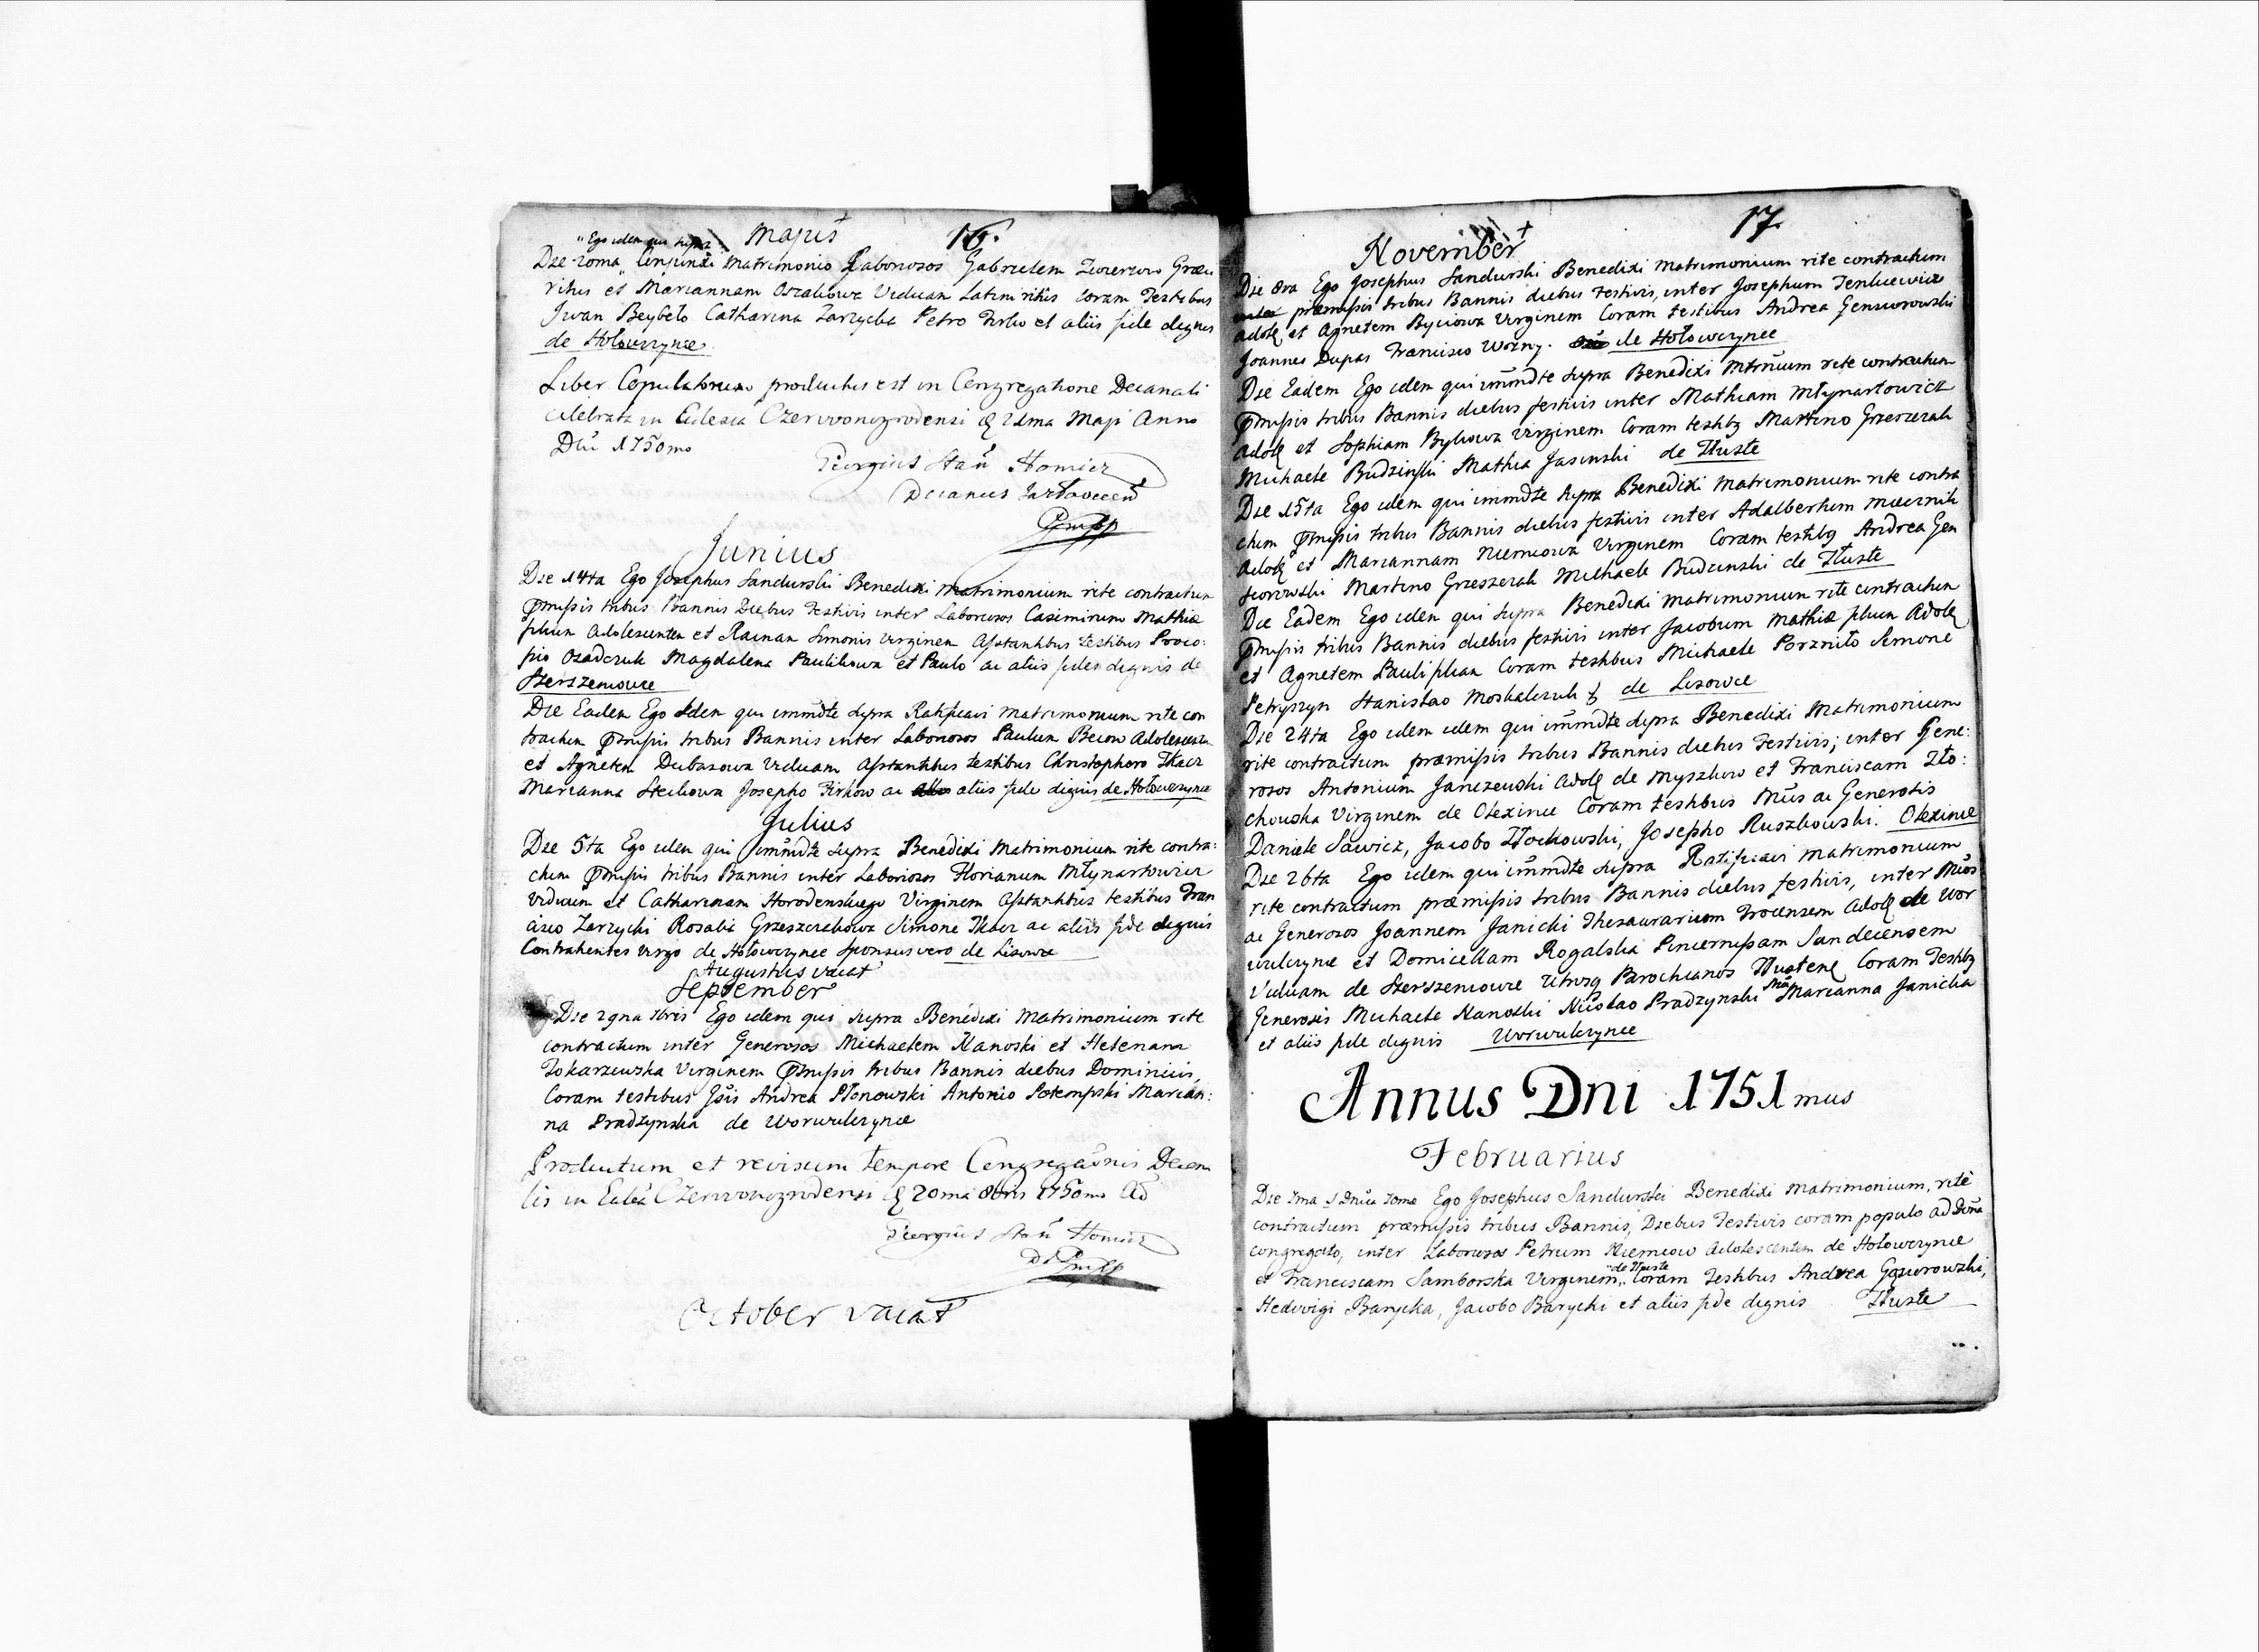 Majus 16.
"Ego idem qui supra
Die 10ma Conjunxi Matrimonio Laboriosos Gabrielem Græci
ritus et Mariannam Viduam Latini ritus Coram Testibus
Iwan Beybeło Catharina Zarzycka Petro et aliis fide dignis
de Hołowczynce
Liber Copulatorum productus est in Congregatione Decanali
celebrata in Eclesia Czerwonogrodensi Maji Anno
Dni 1750mo
Georgius Stan Homicz
Decanus
Junius
Die 14ta Ego Josephus Sandurski Benedixi Matrimonium rite contractum
pmissis tribus Bannis Diebus Festivis inter Laboriosos Casimirum Mathiæ
filium Adolescentem et Simonis Virginem Asstantibus testibus Proco:
pio Osadczuk Magdalena Paulikowa et Paulo ac aliis fide dignis de
Szerszeniowce
Die Eadem Ego Idem qui immdte supra Ratificavi Matrimonium rite con
tractum pmissis tribus Bannis inter Laboriosos Paulum Adolescen
et Agnetem Dubasowa Viduam Asstantibus testibus Christophoro Tkacz
Marianna Steckowa Josepho ac aliis fide dignis de Hołowczynce
Julius
Die 5ta Ego idem qui immdte supra Benedixi Matrimonium rite contra:
ctum pmissis tribus Bannis inter Laboriosos Florianum Młynarkowicz
viduum et Catharinam Horodenskiego Virginem Asstantibus testibus Fran
cisco Zarzycki Rosalia Grzeszczukowa Simone Tkacz ac aliis fide dignis
Contrahentes virgo de Hołowczynce Sponsus vero de Lisowce
Augustus vacat
September
Die 7bris Ego idem qui supra Benedixi Matrimonium rite
contractum inter Generosos Michaelem Kanoski et Helenam
Tokarzewska Virginem pmissis tribus Bannis diebus Dominicis
Coram testibus Gsis Andrea Płonowski Antonio Potempski Marian:
na Pradzynska de Worwulczynce
Productum et revisum tempore Congregaonis Decana
lis in Eclea Czerwonogrodensi 20ma 8bris 1750mo
Georgius Stan Homicz
October vacat
17.
November
Die 8va Ego Josephus Sandurski Benedixi Matrimonium rite contractum
præmissis tribus Bannis diebus Festivis, inter Josephum Tenkiewicz
Adol et Agnetem Byciowa Virginem Coram testibus Andrea Gensiorowski
Joannes Dupas Francisco Wozny. de Hołowczynce
Die Eadem Ego idem qui immdte supra Benedixi Mtrnium rite contractum
pmissis tribus Bannis diebus festivis inter Mathiam Młynarkowicz
Adol et Sophiam Bylowa Virginem Coram testibg Martino Grzeszczak
Michaele Budzinski Mathia Jasinski de Tłuste
Die 15ta Ego idem qui immdte supra Benedixi Matrimonium rite contra
ctum pmissis tribus Bannis diebus festivis inter Adalbertum Miecznik
Adol et Mariannam Niemiowa Virginem Coram testibg Andrea Gen
siorowski Martino Grzeszczak Michaele Budzinski de Tłuste
Die Eadem Ego idem qui supra Benedixi Matrimonium rite contractum
pmissis tribus Bannis diebus festivis inter Jacobum Mathiæ filium Adol
et Agnetem Pauli filiam Coram testibus Michaele Porzniło Simone
Petryszyn Stanislao Moskalczuk de Lisowce
Die 24ta Ego idem idem qui immdte supra Benedixi Matrimonium
rite contractum præmissis tribus Bannis diebus Festivis; inter Gene:
rosos Antonium Janczewski Adol de Myszkow et Franciscam Zło:
chowska Virginem de Olexince Coram testibus Mcis ac Generosis
Daniele Sawicz, Jacobo Złochowski, Josepho Ruszkowski. Olexince
Die 26ta Ego idem qui immdte supra Ratificavi Matrimonium
rite contractum præmissis tribus Bannis diebus festivis, inter Mcos
ac Generosos Joannem Janicki Thesaurarium Trocensem Adol de Wor
wulczynce et Domicellam Rogalska Pincernissam Sandecensem
Viduam de Szerszeniowce Utrosq Parochianos Tłusten Coram Testibg
Generosis Michaele Kanoski Nicolao Pradzynski Marianna Janicka
et aliis fide dignis Worwulczynce
Annus Dni 1751mus
Februarius
Die 7ma Ego Josephus Sandurski Benedixi Matrimonium, rite
contractum præmissis tribus Bannis, Diebus Festivis coram populo ad Divina
congregato, inter Laboriosos Petrum Niemiow Adolescentem de Hołowczynce
et Franciscam Samborska Virginem, "de Tłuste" Coram Testibus Andrea Gąsiorowski,
Hedvigi Barycka, Jacobo Barycki et aliis fide dignis Tłuste